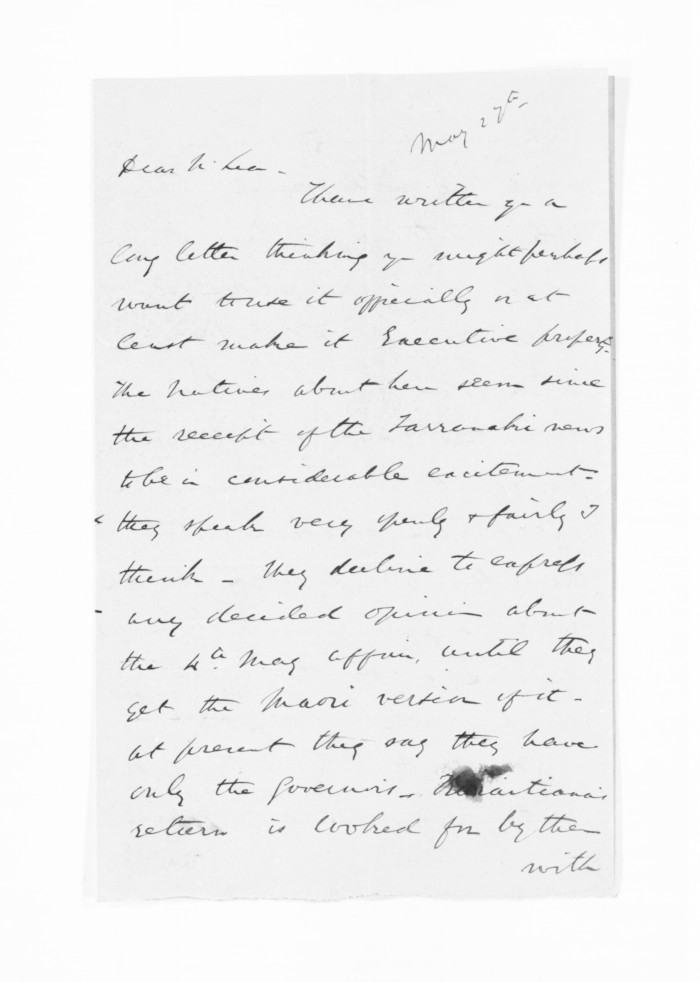 May 27th
Dear McLean -
I have written yr a
long letter thinking yr might perhaps
want to use it officially or at
least make it Executive property.
The Natives about here seem since
the receipt of the Tarranaki news
to be in considerable excitement -
they speak very openly & fairly I
think - They decline to express
any decided opinion about
the 4th May affair, until they
get the Maori version of it -
at present they say they have
only the Governors -
return is looked for by them
with